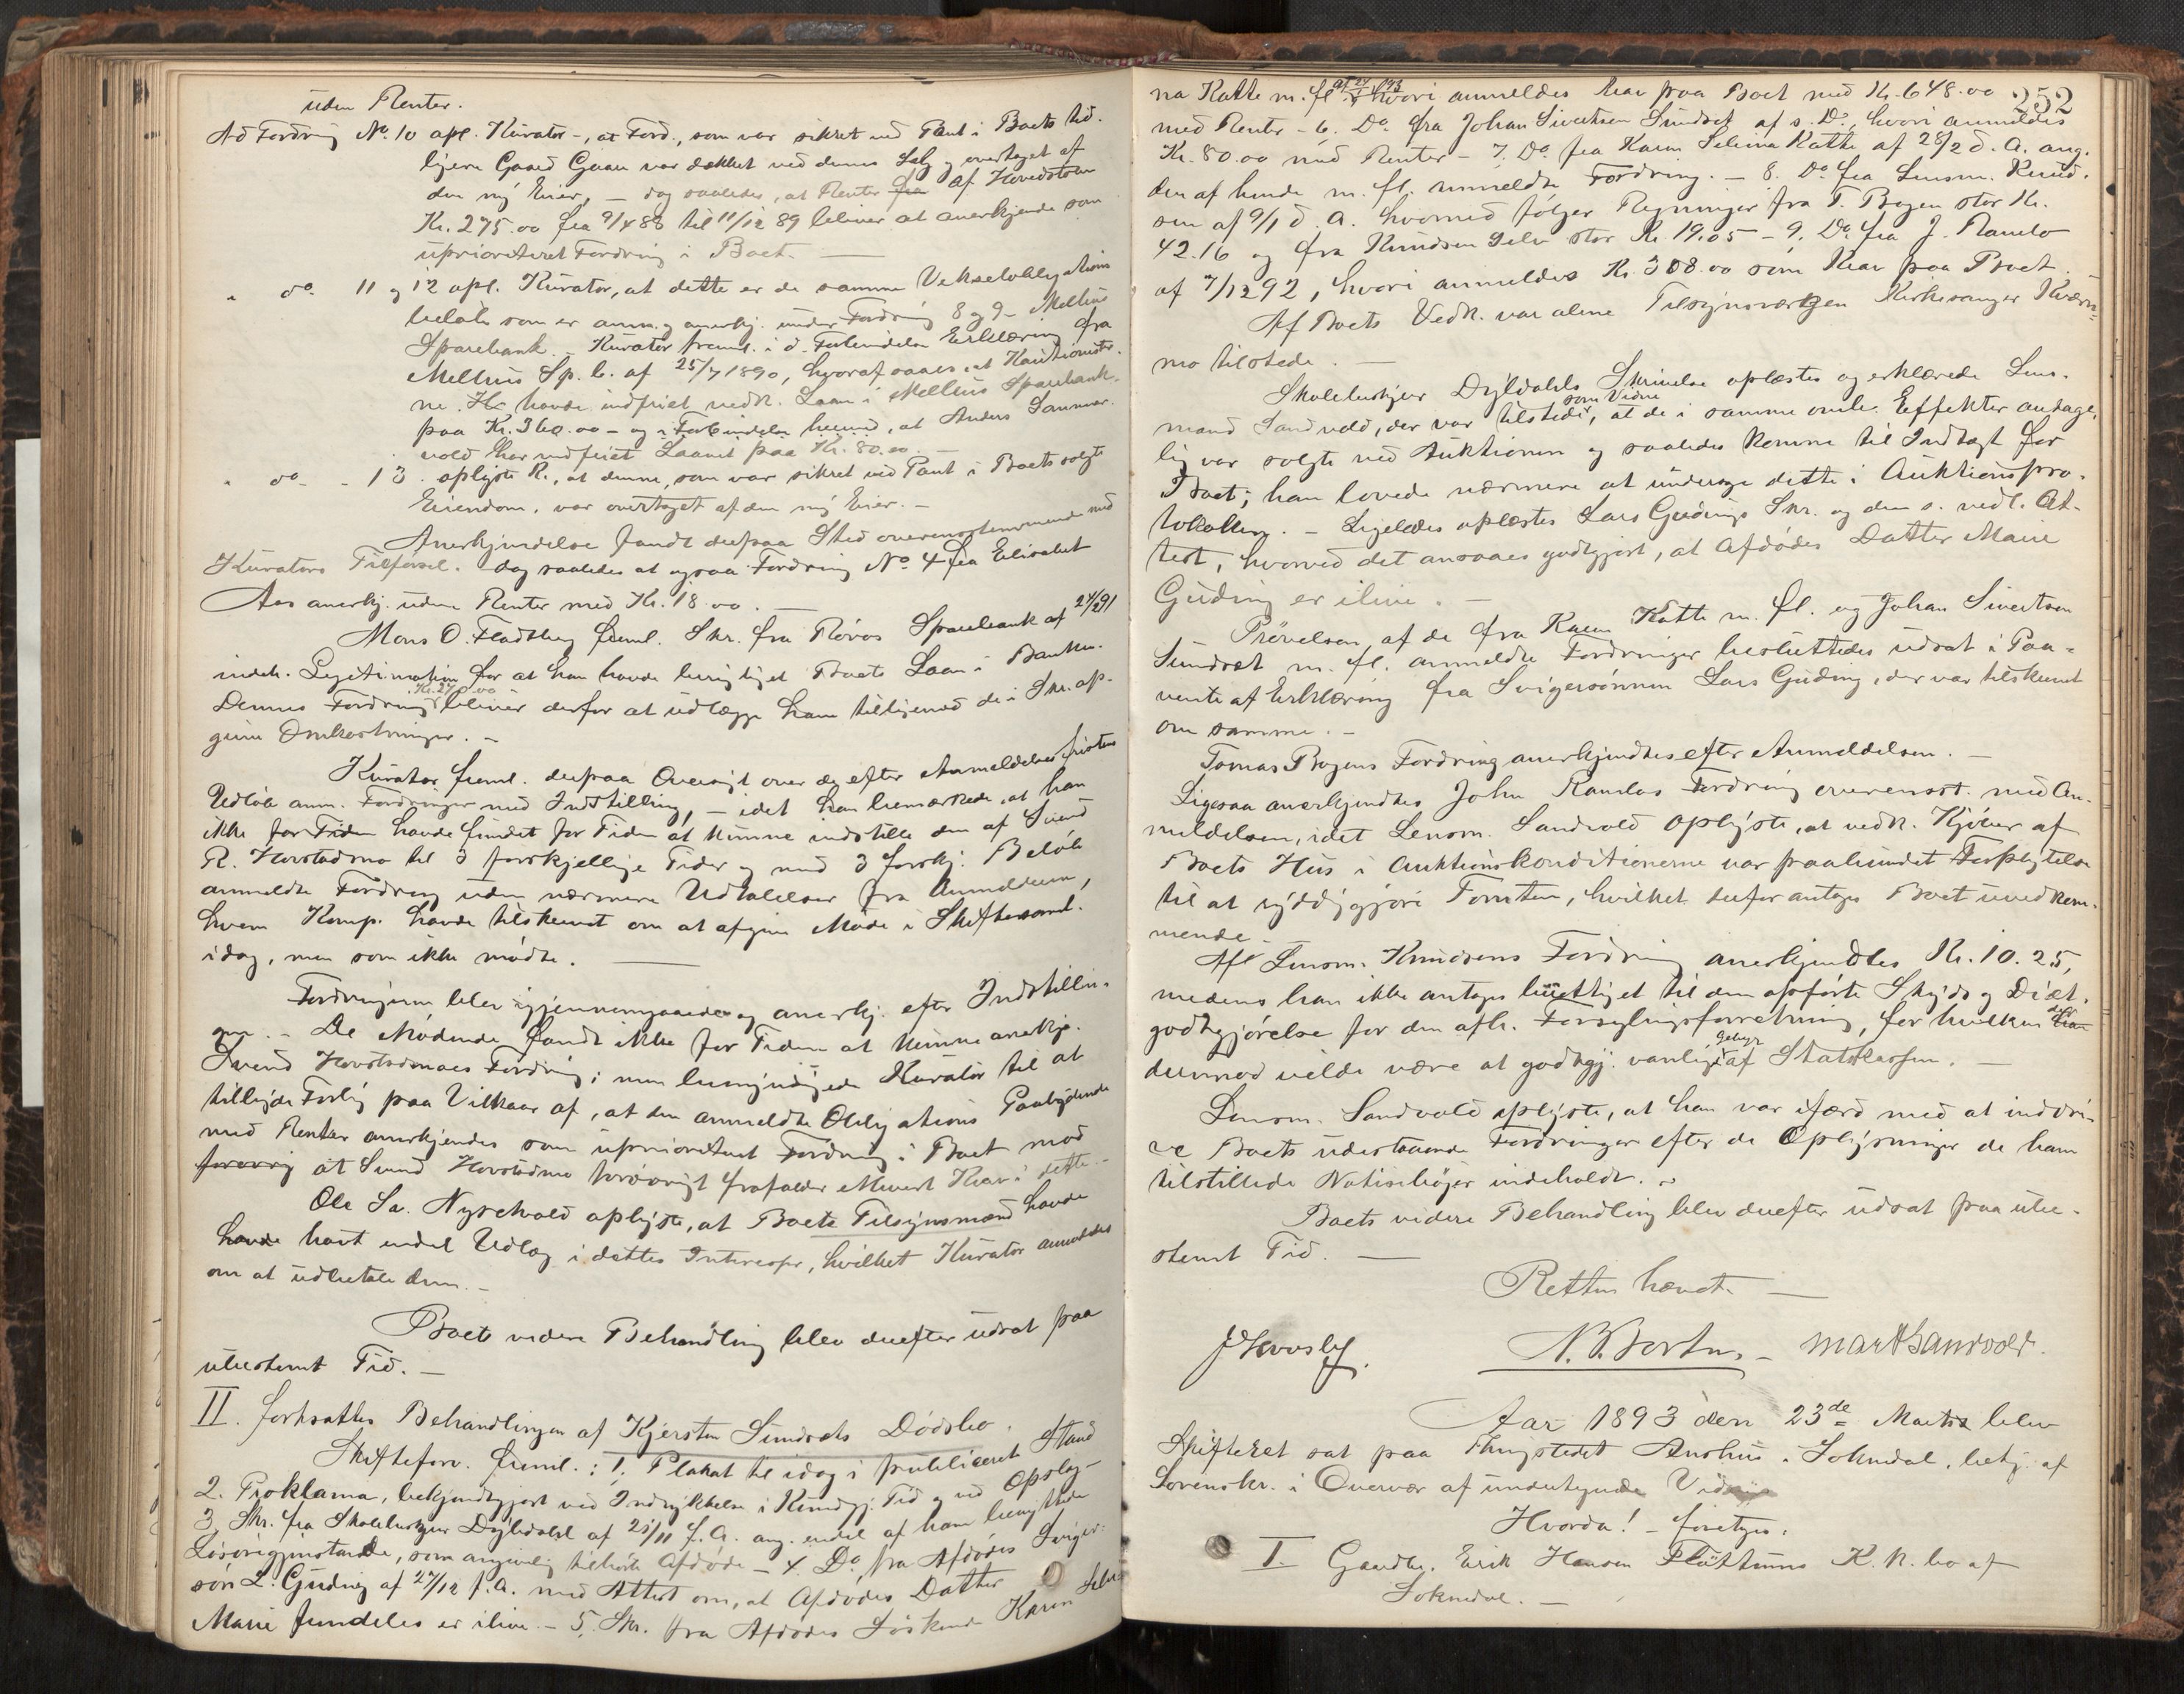 uden Renter.
Ad Fordring No. 10 opl. Kurator -, at Ford., som var sikret ved Pant i Boets tid-
ligere Gaard Gaan var dækket ved dennes Salg og overtaget af
den ny Eier, - dog saaledes, at Renter fra af Hovedstolen
Kr. 275.00 fra 9/4 88 til 11/12 89 bliver at anerkjende som
uprioriteret Fordring i Boet. -
" do. 11 og 12 opl. Kurator, at dette er de samme Vekselobligations
beløb som er anm. og anerkj. under Fordring 8 og 9 - Melhus
Sparebank. - Kurator freml. i d. Forbindelse Erklæring fra
Melhus Sp. b. af 25/7 1890, hvoraf saaes, at Kautionister-
ne. H. havde indfriet vedk. Laan i Melhus Sparebank
paa Kr. 360.00 - og i Forbindelse herved, at Anders Sanmar-
vold har indfriet Laanet paa Kr. 80.00. -
" do - 13. oplyste K., at denne, som var sikret ved Pant i Boets solgte
Eiendom, var overtaget af den ny Eier. -
Anerkjendelse fandt derpaa Sted overensstemmende med
Kurators Tilførsel. dog saaledes at ogsaa Fordring No 4 fra Elisabet
Aas anerkj. uden Renter med Kr. 18.00. -
Mons O. Fladberg freml. Skr. fra Røros Sparebank af 24/2 91
indeh. Legitimation for at han havde berigtiget Boets Laan i Banken.
Kr. 27.00
Dennes Fordring bliver derfor at udlægge ham tilligemed de i Skr. op-
givne Omkostninger. -
Kurator freml. derpaa Oversigt over de efter Anmeldelsesfristens
Udløb anm. Fordringer med Indstilling, - idet han bemærkede, at han
ikke for Tiden havde fundet for Tiden at kunne indstille den af Svend
R. Hovstadmo til 3 forskjellige Tider og med 3 forskj. Beløb
anmeldte Fordring uden nærmere Udtalelser fra Anmelderen,
hvem Komp. havde tilskrevet om at afgive Møde i Skiftesaml.
idag, men som ikke mødte. -
Fordringerne blev gjennemgaaede og anerkj. efter Indstillin-
gen. - De Mødende fandt ikke for Tiden at kunne anerkj.
Svend Hovstadmoes Fordring; men bemyndigede Kurator til at
tilbyde Forlig paa Vilkaar af, at den anmeldte Obligations Paalydende
med Renter anerkjendes som uprioriteret Fordring i Boet mod
forøvrig at Svend Hovstadmo forøvrigt frafalder ethvert Krav i dette. -
Ole Sa. Nyrehvold oplyste, at Boets Tilsynsmænd havde
havde havt endel Udlæg i dettes Interesse, hvilket Kurator anmodes
om at udbetale dem. -
Boets videre Behandling blev derefter udsat paa
ubestemt Tid. -
II. fortsattes Behandlingen af Kjersten Sundsets Dødsbo.
Skifteforv. freml.: 1. Plakat til idag i publiceret Stand
2. Proklama, bekjendtgjort ved Indrykkelse i Kundgj. Tid og ved Opslag -
3. Skr. fra Skolebestyrer Dybdahl af 21/11 f. A. ang. endel af ham benyttede
Løsøregjenstande, som angivelig tilhørte Afdøde - 4. Do fra Afdødes Sviger-
søn L. Guding af 27/12 f. A. med Attest om, at Afdødes Datter
Marie fremdeles er ilive. - 5. Skr. fra Afdødes Søskende Karen Seli-
252
af 27/1 93
na Katte m. fl. hvori anmeldes krav paa Boet med Kr. 648.00
med Renter - 6. Do fra Johan Sivertsen Sundset af s. D., hvori anmeldes
Kr. 80.00 med Renter - 7. Do fra Karen Selina Katte af 28/2 d. A. ang.
den af hende m. fl. anmeldte Fordring. - 8. Do fra Lensm. Knud-
sen af 9/1 d. A. hvormed følger Regninger fra T. Bogen stor Kr.
42.16 og fra Knudsen selv stor Kr. 19.05 - 9. Do fra J. Ramlo
af 7/12 92, hvori anmeldes Kr. 308.00 som Krav paa Boet.
Af Boets Vedk. var alene Tilsynsværgen Kirkesanger Kværn-
mo tilstede. -
Skolebestyrer Dybdahls Skrivelse oplæstes og erklærede Lens-
som Vidne
mand Sandvold, der var tilstede, at de i samme omh. Effekter antage-
lig var solgte ved Auktionen og saaledes komme til Indtægt for
Boet; han lovede nærmere at undersøge dette i Auktionspro-
tokollen. - Ligeledes oplæstes Lars Gudings Skr. og den s. vedl. At-
test, hvorved det ansaaes godtgjort, at Afdødes Datter Marie
Guding er ilive. -
Prøvelsen af de fra Karen Katte m. fl. og Johan Sivertsen
Sundset m. fl. anmeldte Fordringer besluttedes udsat i Paa-
vente af Erklæring fra Svigersønnen Lars Guding, der var tilskrevet
om samme. -
Tomas Bogens Fordring anerkjendtes efter Anmeldelsen. -
Ligesaa anerkjendtes John Ramlos Fordring overensst. med An-
meldelsen, idet Lensm. Sandvold oplyste, at vedk. Kjøber af
Boets Hus i Auktionskonditionerne var paabundet Forpligtelse
til at ryddiggjøre Tomten, hvilket derfor antages Boet uvedkom-
mende. -
Af Lensm. Knudsens Fordring anerkjendtes Kr. 10.25,
medens han ikke antages berettiget til den opførte Skyds og Diæt-
godtgjørelse for den afh. Forseglingsforretning, for hvilken han der
Gebyr
derimod vilde være at godtgj. vanligt af Statskassen. -
Lensm. Sandvold oplyste, at han var ifærd med at inddri-
ve Boets udestaaende Fordringer efter de Oplysninger de ham
tilstillede Notisebøger indeholdt. -
Boets videre Behandling blev derefter udsat paa ube-
stemt Tid. -
Retten hævet. -
N. B. Borten. - Mart Sandvold.
Aar 1893 den 23de Marts blev
Skifteret sat paa Thingstedet Aashus i Soknedal, betj. af
Sorenskr. i Overvær af undertegnede Vidner
Hvorda! - foretoges:
I. Gaardbr. Erik Hansen Flåttums K. K. bo af
Soknedal. -